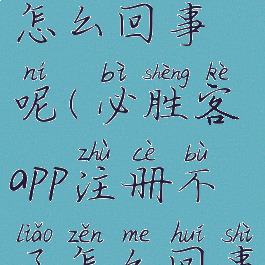 怎么回事
ní bì shèng kè
呢(必胜客
zhù cè bù
app注册不
liǎo zěn me huí shì
了怎么回事